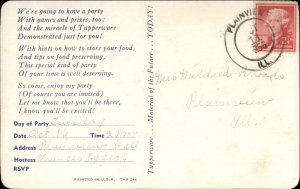 We're going to have a party
With games and prizes, too;
And the miracle of Tupperware
Demonstrated just for you!
With hints on how to store your food,
And tips on food preserving,
This special kind of party
Of your time is well deserving.
So come, enjoy my party
(Of course you are invited)
Let me know that you'll be there,
I know you'll be excited!
Day of Party: Tuesday
Date Oct 16 Time 2 PM
Address Plainview Hall
Hostess Frances Eggers
RSVP
PRINTED IN U.S.A. TAP 244
Tupperware...Material of the Future...TODAY!
PLAINVIEW
ILL.
Mrs Mildred Rhoads
Plainview
Ill.